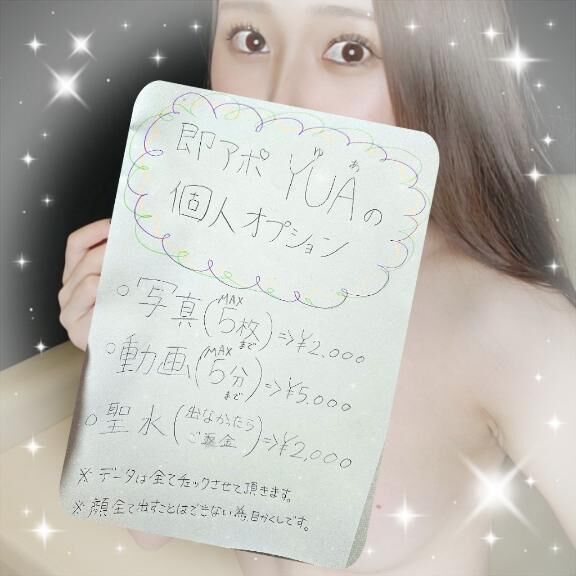 即アポ YUAの
ゆ あ
個人オプション
○写真(MAX5枚まで)⇒¥2,000
○動画(MAX5分まで)⇒¥5,000
○聖水(出なかったらご返金)⇒¥2,000
※データは全てチェックさせて頂きます。
※顔全て出すことはできない為、目かくしです。